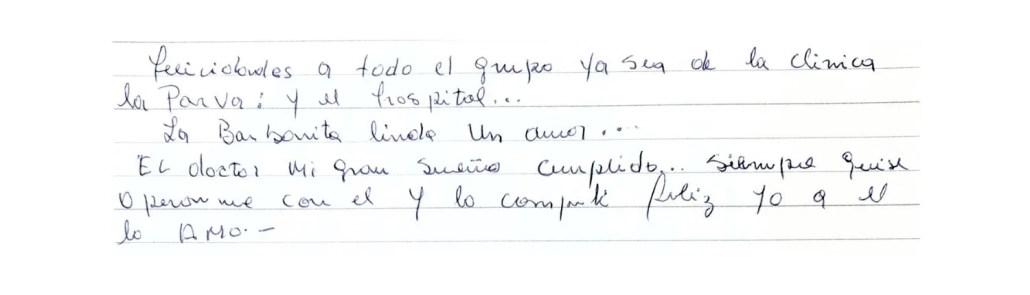 Felicidades a todo el grupo ya sea de la clinica
la Parva; y el hospital...
La Barbarita linda un amor....
EL doctor mi gran sueño cumplido... siempre quise
operarme con el y lo cumplí feliz yo a el
lo AMO.-